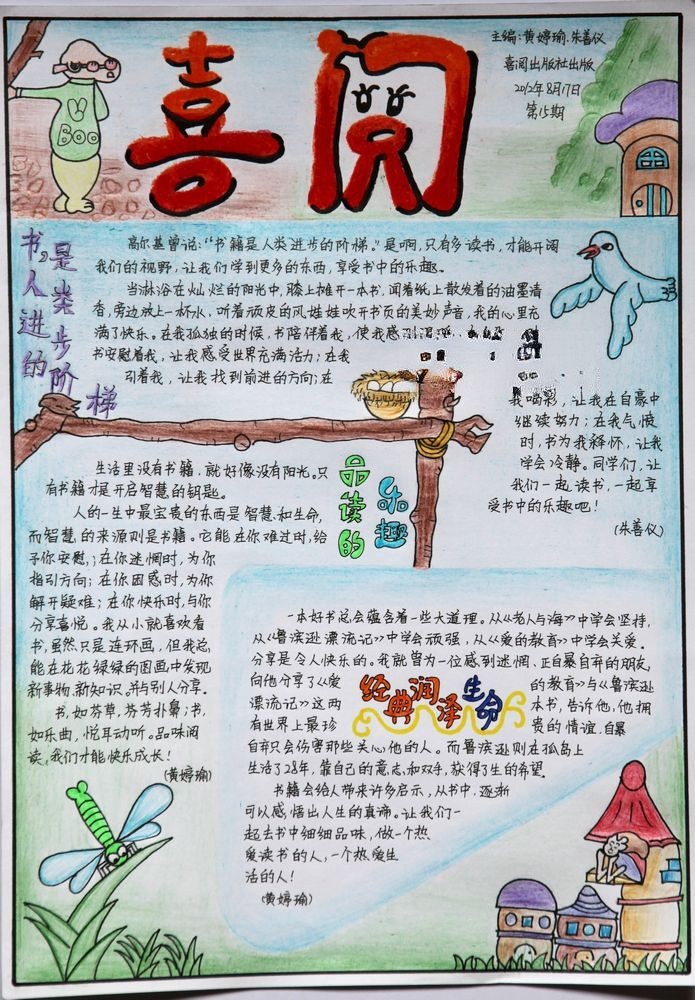 喜阅
主编:黄婷瑜、朱善仪
喜阅出版社出版
2012年8月17日
第15期
BOO
书是人类进步的阶梯
高尔基曾说:“书籍是人类进步的阶梯。”是啊,只有多读书,才能开阔
我们的视野,让我们学到更多的东西,享受书中的乐趣。
当淋浴在灿烂的阳光中,膝上摊开一本书,闻着纸上散发着的油墨清
香,旁边放上一杯水,听着顽皮的风娃娃吹开书页的美妙声音,我的心里充
满了快乐。在我孤独的时候,书陪伴着我,使我感
书安慰着我,让我感受世界充满活力;在我
引着我,让我找到前进的方向;在
我喝彩,让我在自豪中
继续努力;在我气愤
时,书为我释怀,让我
学会冷静。同学们,让
我们一起读书,一起享
受书中的乐趣吧!
(朱善仪)
品读的乐趣
生活里没有书籍,就好像没有阳光。只
有书籍才是开启智慧的钥匙。
人的一生中最宝贵的东西是智慧和生命,
而智慧的来源则是书籍。它能在你难过时,给
予你安慰;在你迷惘时,为你
指引方向;在你困惑时,为你
解开疑难;在你快乐时,与你
分享喜悦。我从小就喜欢看
书,虽然只是连环画,但我总
能在花花绿绿的图画中发现
新事物、新知识,并与别人分享。
书,如芬草,芬芳扑鼻;书,
如乐曲,悦耳动听。品味阅
读,我们才能快乐成长!
(黄婷瑜)
经典润泽生命
一本好书总会蕴含着一些大道理。从《老人与海》中学会坚持,
从《鲁滨逊漂流记》中学会顽强,从《爱的教育》中学会关爱。
分享是令人快乐的。我就曾为一位感到迷惘、正自暴自弃的朋友,
向他分享了《爱的教育》与《鲁滨逊
漂流记》这两本书,告诉他,他拥
有世界上最珍贵的情谊,自暴
自弃只会伤害那些关心他的人。而鲁滨逊则在孤岛上
生活了28年,靠自己的意志和双手,获得了生的希望。
书籍会给人带来许多启示,从书中,逐渐
可以感悟出人生的真谛。让我们一
起去书中细细品味,做一个热
爱读书的人,一个热爱生
活的人!
(黄婷瑜)